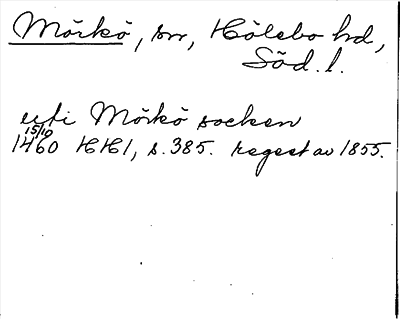 Mörkö, sn, Hölebo hd,
Söd. l.
uti Mörkö socken
15/10
1460 HH1, s. 385. regest av 1855.